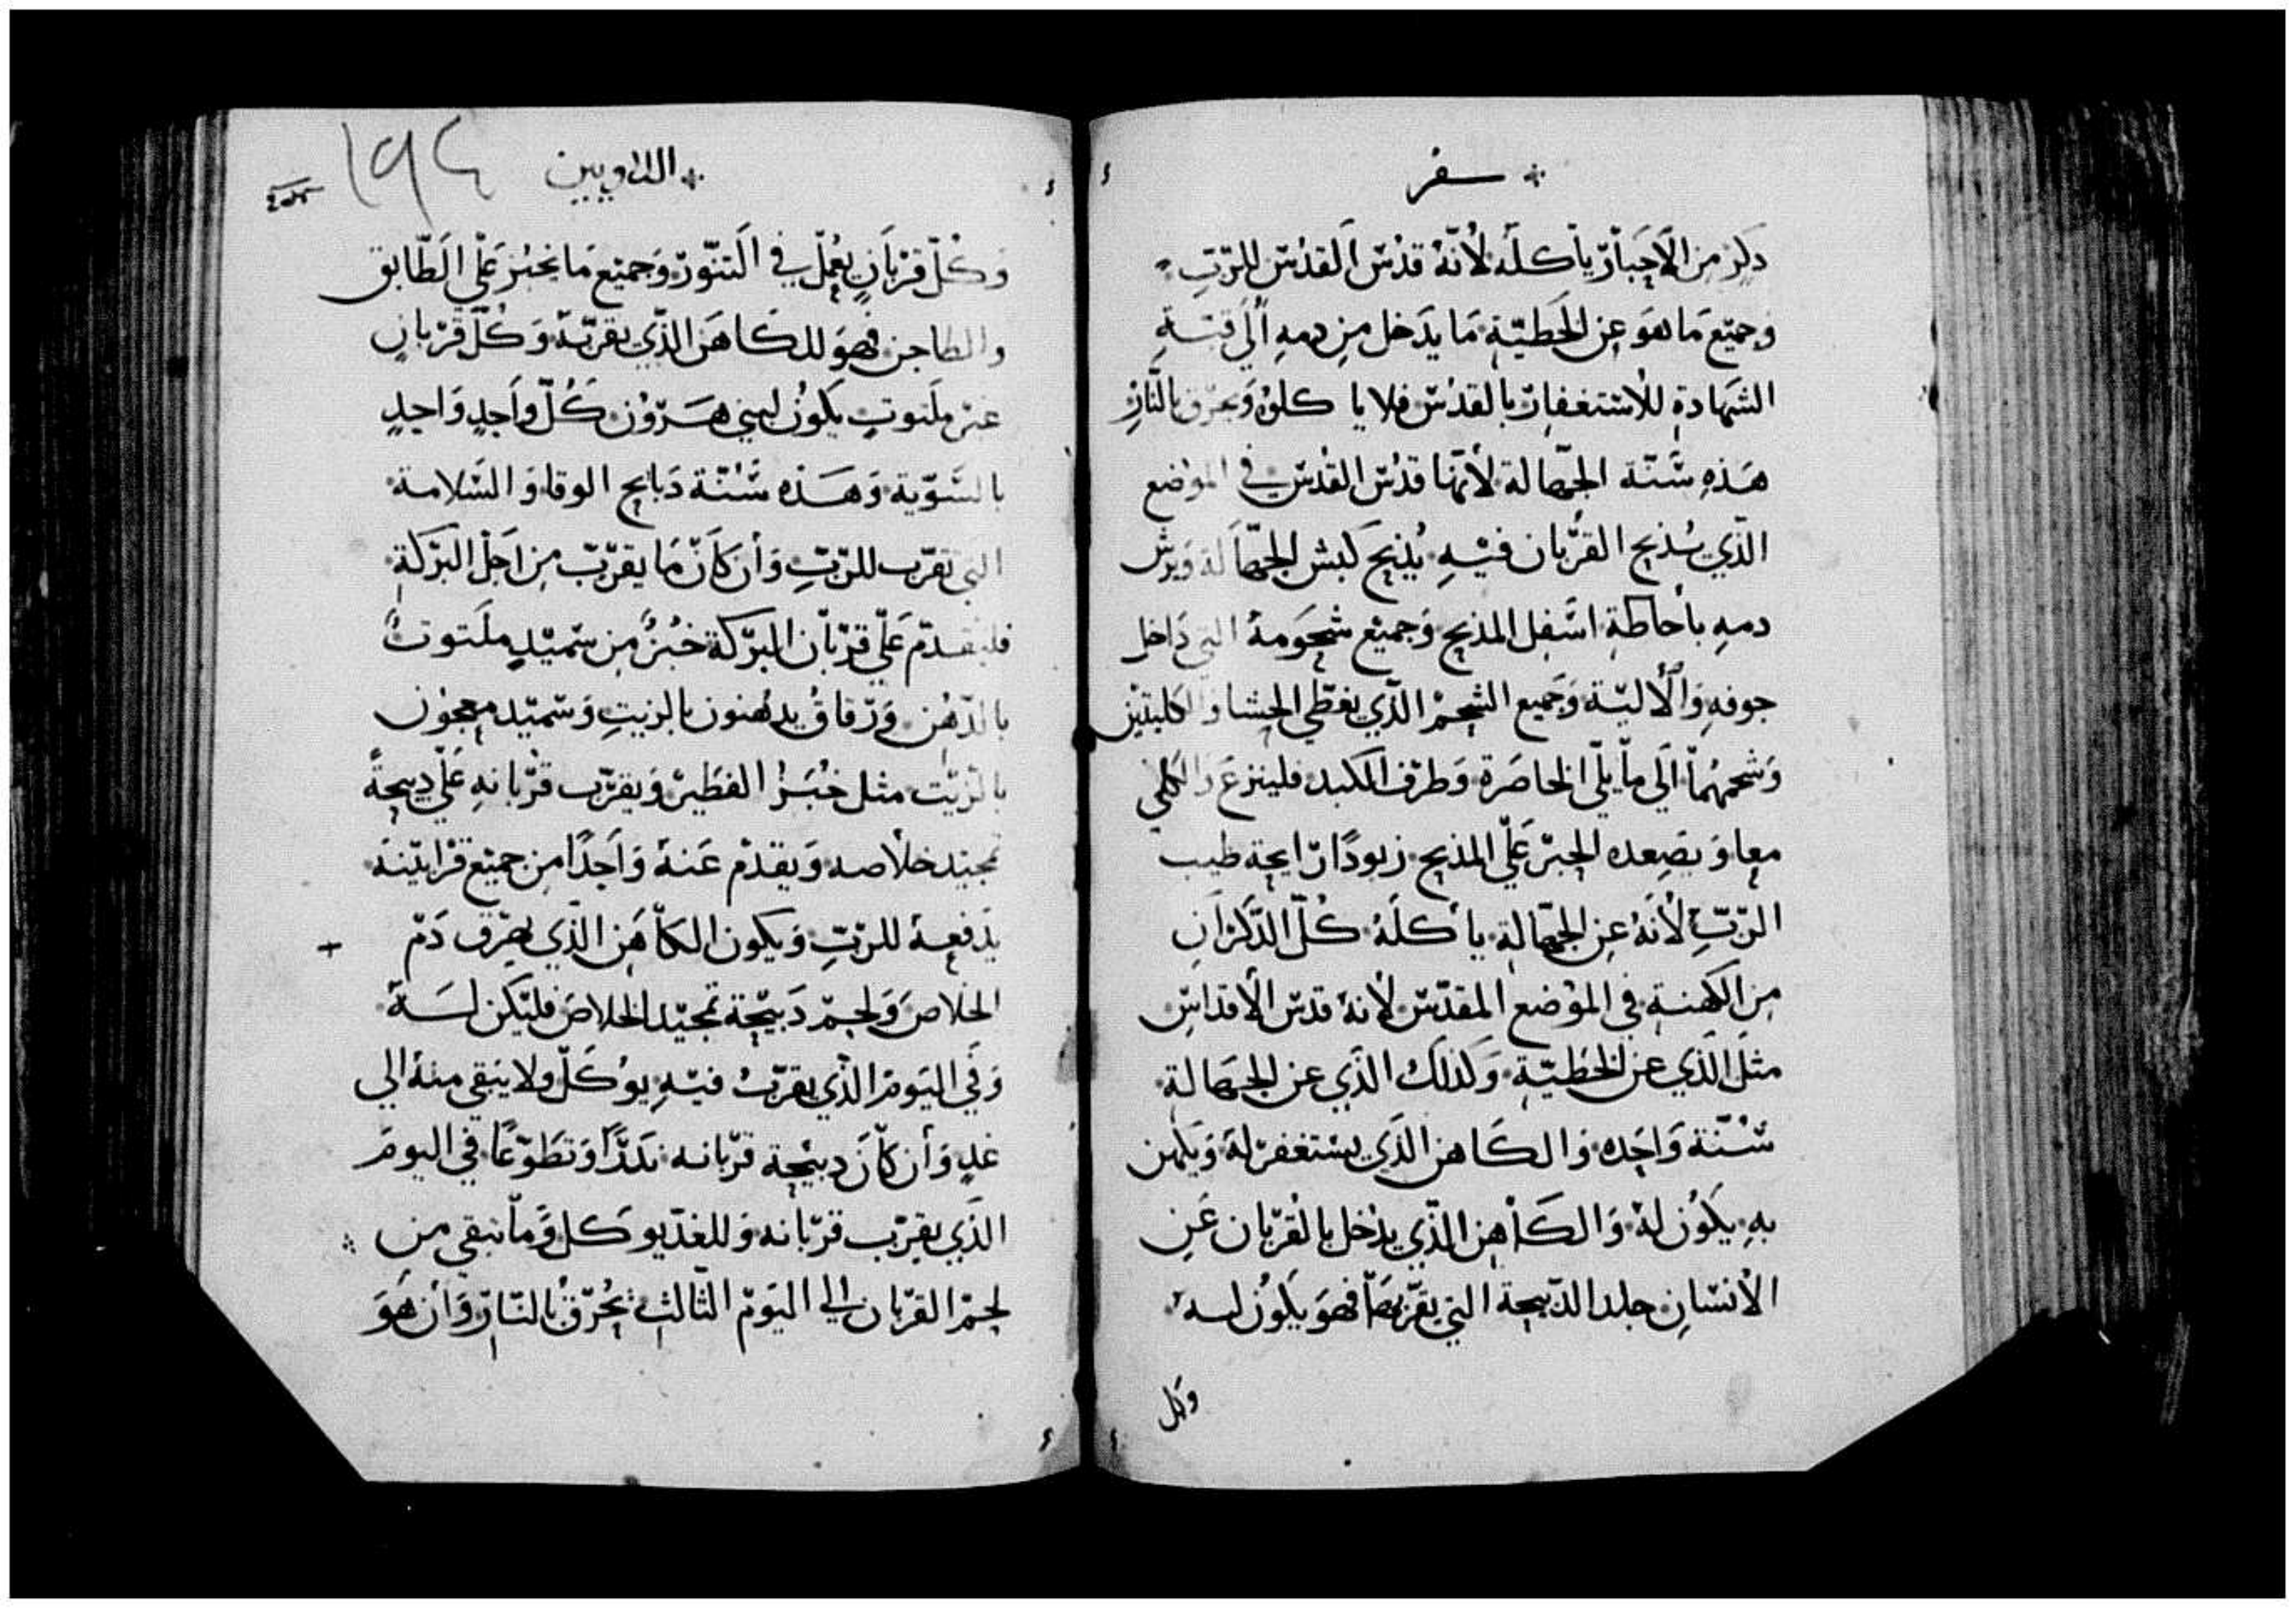 سفر
دكر من الاحبار ياكله لانه قدس القدس للرب
وجميع ما هو عن الخطية ما يدخل من دمه الي قبة
الشهادة للاستغفار بالقدس فلا ياكلوه ويحرق بالنار
هذه سنة الجهالة لانها قدس القدس في الموضع
الذي يذبح القربان فيه يذبح كبش الجهالة ويرش
دمه باحاطة اسفل المذبح وجميع شحومه التي داخل
جوفه والالية وجميع الشحم الذي يغطي الحشا والكليتين
وشحمهما الي ما يلي الخاصرة وطرف الكبد فلينزع والكلي
معا ويصعده الحبر علي المذبح زبودا رايحة طيب
الرب لانه عن الجهالة ياكله كل الذكران
من الكهنة في الموضع المقدس لانه قدس الاقداس
مثل الذي عن الخطية وكذلك الذي عن الجهالة
سنة واحده والكاهن الذي يستغفر له ويكهن
به يكون له والكاهن الذي يدخل بالقربان عن
الانسان جلد الذبيحة التي يقربها فهو يكون له
وكل
اللاويين
١٩٤
وكل قربان يعمل في التنور وجميع ما يخبز علي الطابق
والطاجن فهو للكاهن الذي يقربه وكل قربان
غير ملتوت يكون لبني هرون كل واحد واحد
بالسوية وهذه سنة دبايح الوقا والسلامة
التي تقرب للرب وأن كان ما يقرب من اجل البركة
فليقدم علي قربان البركة خبز من سميد ملتوت
بالدهن ورقاق يدهنون بالزيت وسميد معجون
بالزيت مثل خبز الفطير ويقرب قربانه علي دبيحة
تمجيد خلاصه ويقدم عنه واحدا من جميع قرابينه
يدفعه للرب ويكون الكاهن الذي يهرق دم
الخلاص ولحم دبيحة تمجيد الخلاص فليكن له
وفي اليوم الذي يقرب فيه يوكل ولا يبقي منه الي
غد وأن كان دبيحة قربانه ندرا وتطوعا في اليوم
الذي يقرب قربانه وللغد يوكل وما تبقي من
لحم القربان الي اليوم الثالث يحرق بالنار وأن هو